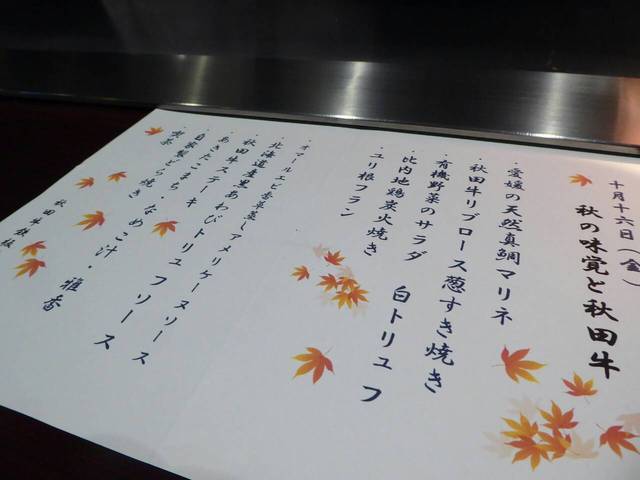 十月十六日(金)
秋の味覚と秋田牛
・愛媛の天然真鯛マリネ
・秋田牛リブロース葱すき焼き
・有機野菜のサラダ 白トリュフ
・比内地鶏炭火焼き
・ユリ根フラン
・オマールエビ香草蒸しアメリケーヌソース
・北海道産黒あわびトリュフソース
・秋田牛ステーキ
・あきたこまち・なめこ汁・雅香
・自家製どら焼き
・喫茶
秋田牛銀座